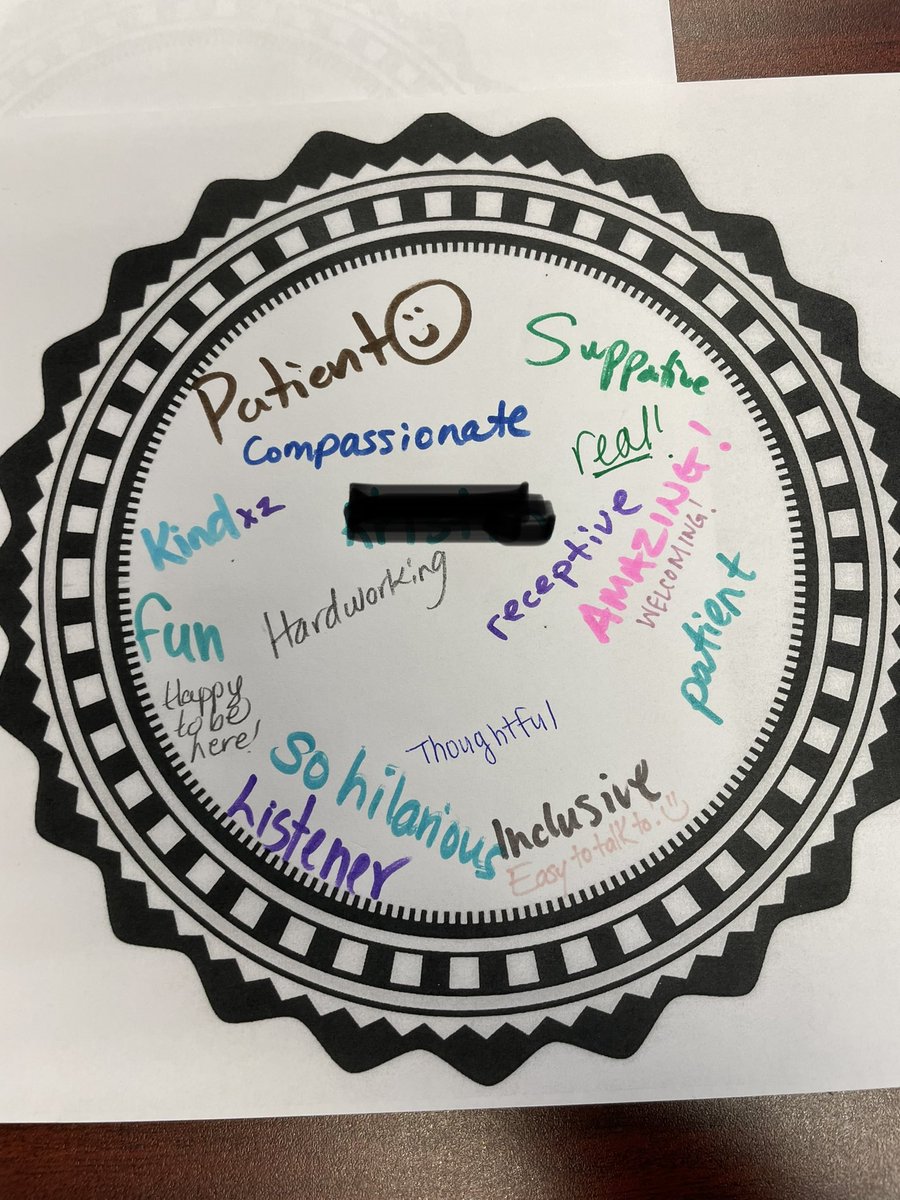 Patient
Supportive
Compassionate
real!
Kind x2
receptive
AMAZING!
WELCOMING!
Hardworking
patient
fun
Happy
to be
here!
So hilarious
Thoughtful
Listener
Inclusive
Easy to talk to!